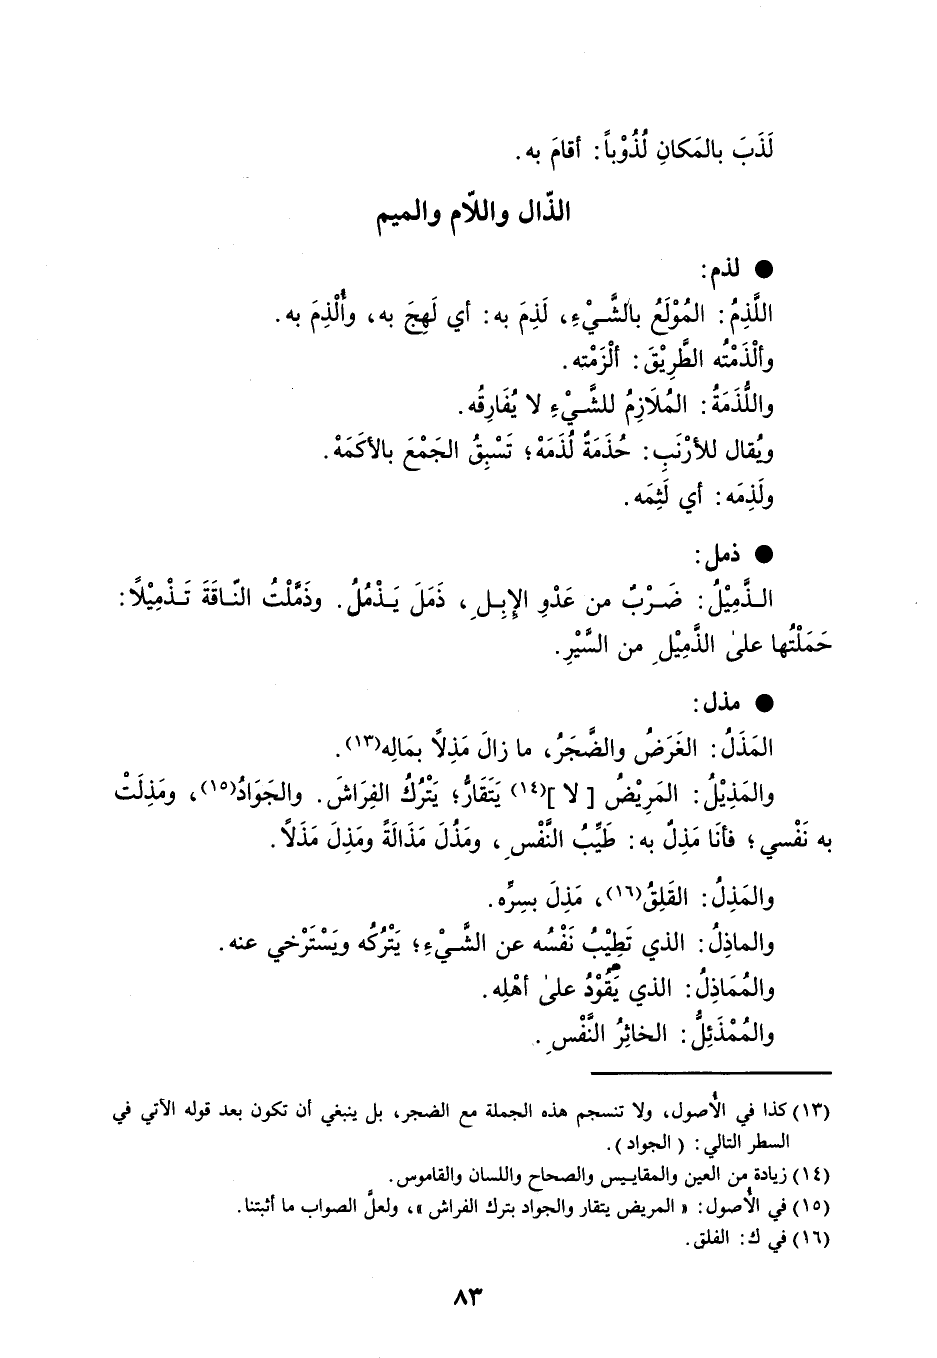 لَذَبَ بالمَكانِ لُذُوْباً: أقامَ به.
الذّال واللّام والميم
● لذم:
اللَّذِمُ: المُوْلَعُ بالشَّيْءِ، لَذِمَ به: أي لَهِجَ به، وأُلْذِمَ به.
وألْذَمْتُه الطَّرِيْقَ: ألْزَمْته.
واللُّذَمَةُ: المُلَازِمُ للشَّيْءِ لا يُفَارِقُه.
ويُقال للأرْنَبِ: حُذَمَةٌ لُذَمَهْ؛ تَسْبِقُ الجَمْعَ بالأكَمَهْ.
ولَذِمَه: أي لَثِمَه.
● ذمل:
الذَّمِيْلُ: ضَرْبٌ من عَدْوِ الإِبِلِ، ذَمَلَ يَذْمُلُ. وذَمَّلْتُ النّاقَةَ تَذْمِيْلاً:
حَمَلْتُها علىٰ الذَّمِيْلِ من السَّيْرِ.
● مذل:
المَذَلُ: الغَرَضُ والضَّجَرُ، ما زالَ مَذِلاً بمَالِه(١٣).
والمَذِيْلُ: المَرِيْضُ [ لا ](١٤) يَتَقَارُّ؛ يَتْرُكُ الفِرَاشَ. والجَوَادُ(١٥)، ومَذِلَتْ
به نَفْسي؛ فأنَا مَذِلٌ به: طَيِّبُ النَّفْسِ، ومَذُلَ مَذَالَةً ومَذِلَ مَذَلاً.
والمَذِلُ: القَلِقُ(١٦)، مَذِلَ بسِرِّه.
والماذِلُ: الذي تَطِيْبُ نَفْسُه عن الشَّيْءِ؛ يَتْرُكُه ويَسْتَرْخي عنه.
والمُمَاذِلُ: الذي يَقُوْدُ علىٰ أهْلِه.
والمُمْذَئِلُّ: الخاثِرُ النَّفْسِ.
(١٣) كذا في الأُصول، ولا تنسجم هذه الجملة مع الضجر، بل ينبغي أن تكون بعد قوله الآتي في
السطر التالي: ( الجواد ).
(١٤) زيادة من العين والمقاييس والصحاح واللسان والقاموس.
(١٥) في الأُصول: « المريض يتقار والجواد بترك الفراش »، ولعلَّ الصواب ما أثبتنا.
(١٦) في ك: الفلق.
٨٣